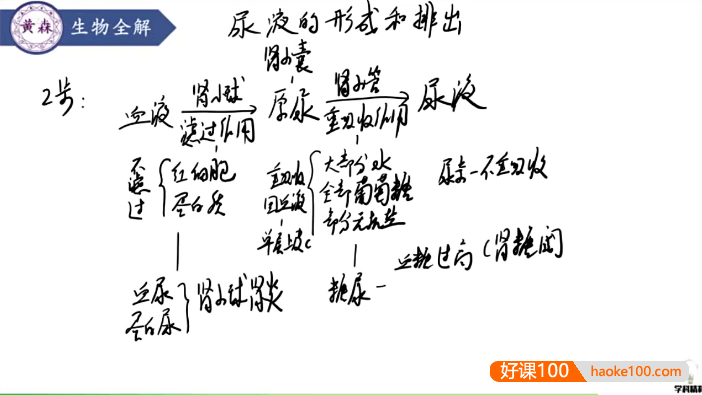 黄森 生物全解
尿液的形成和排出
肾小囊
2步:
血液 肾小球 滤过作用 原尿 肾小管 重吸收作用 尿液
不滤过
红细胞
蛋白质
重吸收
回血液
单层上皮c
大部分水
全部葡萄糖
部分无机盐
尿素-不重吸收
血糖过高(肾糖阈
血尿
蛋白尿
肾小球肾炎
糖尿-
好课100
haoke100.com
学科精